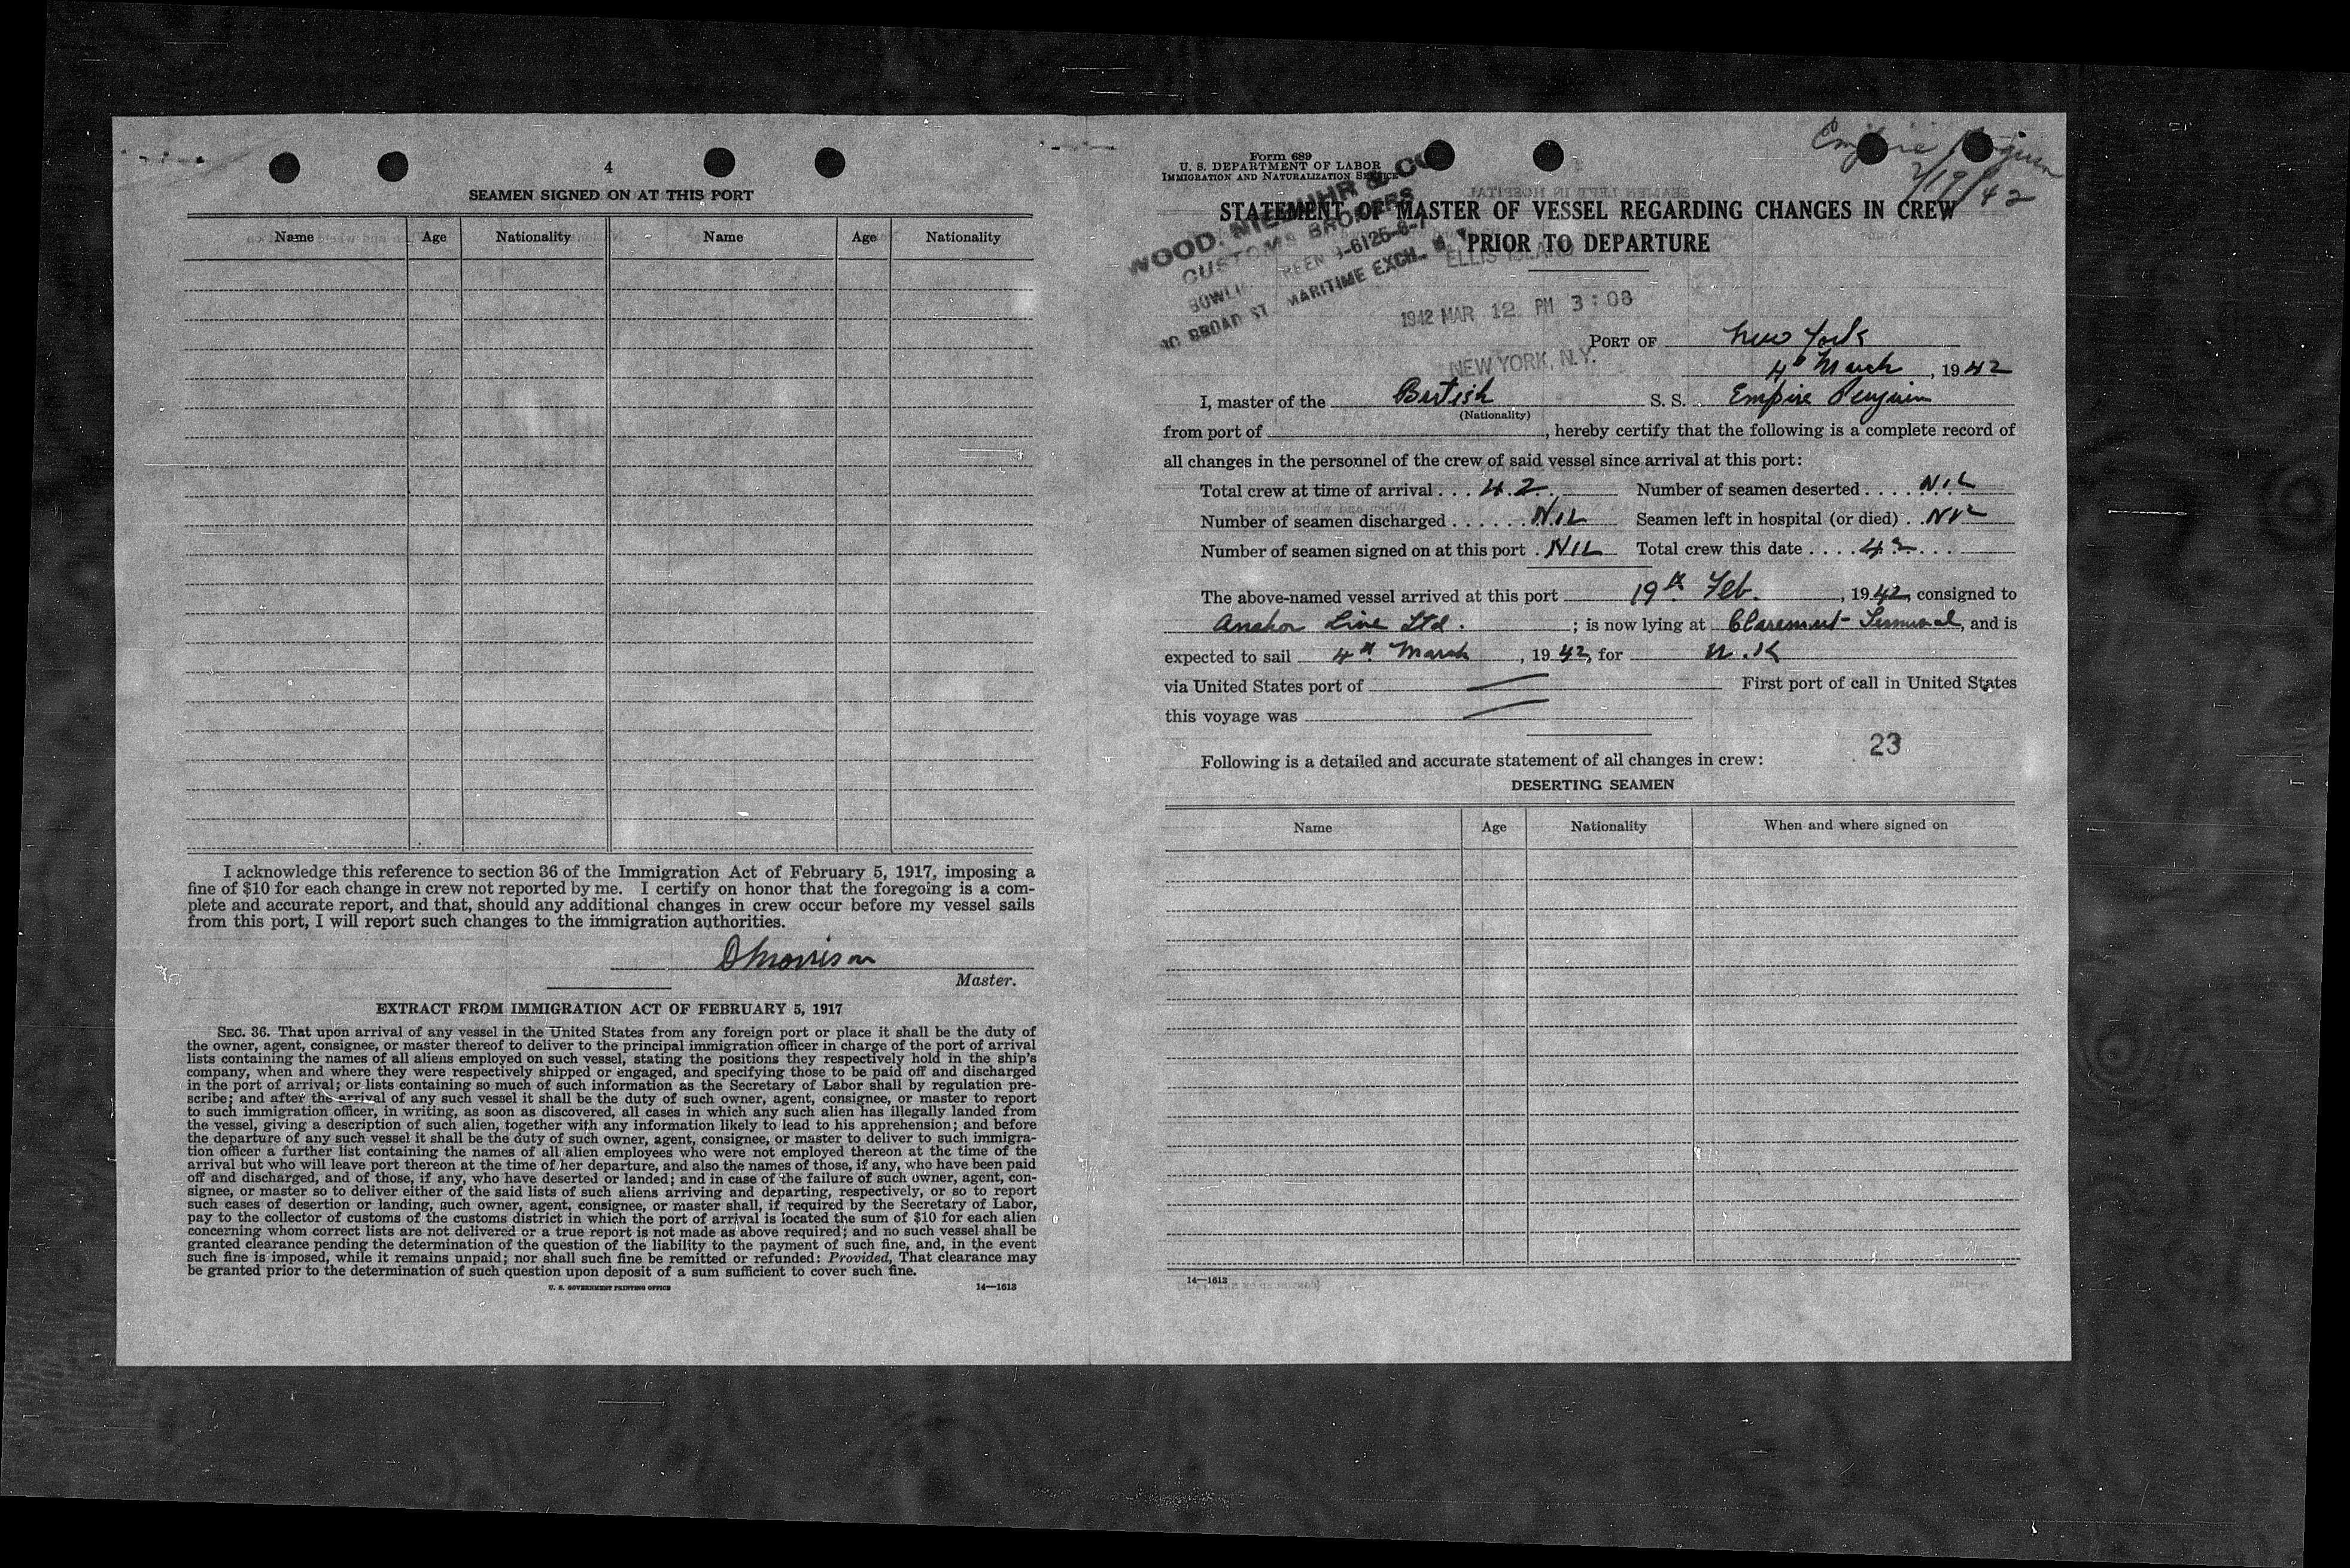 4
SEAMEN SIGNED ON AT THIS PORT
Name Age Nationality Name Age Nationality
I acknowledge this reference to section 36 of the Immigration Act of February 5, 1917, imposing a
fine of $10 for each change in crew not reported by me. I certify on honor that the foregoing is a com-
plete and accurate report, and that, should any additional changes in crew occur before my vessel sails
from this port, I will report such changes to the immigration authorities.
DMorrison
Master.
EXTRACT FROM IMMIGRATION ACT OF FEBRUARY 5, 1917
SEC. 36. That upon arrival of any vessel in the United States from any foreign port or place it shall be the duty of
the owner, agent, consignee, or master thereof to deliver to the principal immigration officer in charge of the port of arrival
lists containing the names of all aliens employed on such vessel, stating the positions they respectively hold in the ship's
company, when and where they were respectively shipped or engaged, and specifying those to be paid off and discharged
in the port of arrival; or lists containing so much of such information as the Secretary of Labor shall by regulation pre-
scribe; and after the arrival of any such vessel it shall be the duty of such owner, agent, consignee, or master to report
to such immigration officer, in writing, as soon as discovered, all cases in which any such alien has illegally landed from
the vessel, giving a description of such alien, together with any information likely to lead to his apprehension; and before
the departure of any such vessel it shall be the duty of such owner, agent, consignee, or master to deliver to such immigra-
tion officer a further list containing the names of all alien employees who were not employed thereon at the time of the
arrival but who will leave port thereon at the time of her departure, and also the names of those, if any, who have been paid
off and discharged, and of those, if any, who have deserted or landed; and in case of the failure of such owner, agent, con-
signee, or master so to deliver either of the said lists of such aliens arriving and departing, respectively, or so to report
such cases of desertion or landing, such owner, agent, consignee, or master shall, if required by the Secretary of Labor,
pay to the collector of customs of the customs district in which the port of arrival is located the sum of $10 for each alien
concerning whom correct lists are not delivered or a true report is not made as above required; and no such vessel shall be
granted clearance pending the determination of the question of the liability to the payment of such fine, and, in the event
such fine is imposed, while it remains unpaid; nor shall such fine be remitted or refunded: Provided, That clearance may
be granted prior to the determination of such question upon deposit of a sum sufficient to cover such fine.
U. S. GOVERNMENT PRINTING OFFICE 14—1613
Form 689
U. S. DEPARTMENT OF LABOR
IMMIGRATION AND NATURALIZATION SERVICE
Empire Penguin
2/19/42
WOOD, NIEBUHR & CO
CUSTOMS BROKERS
-6125-6-7
BROAD ST. MARITIME EXCH. N. Y.
STATEMENT OF MASTER OF VESSEL REGARDING CHANGES IN CREW
PRIOR TO DEPARTURE
ELLIS ISLAND
1942 MAR 12 PM 3:08
NEW YORK, N.Y.
PORT OF New York
4th March, 1942
I, master of the British S. S. Empire Penguin
(Nationality)
from port of , hereby certify that the following is a complete record of
all changes in the personnel of the crew of said vessel since arrival at this port:
Total crew at time of arrival . . . 42 Number of seamen deserted . . . . NIL
Number of seamen discharged . . . . . . NIL Seamen left in hospital (or died) . . NIL
Number of seamen signed on at this port . NIL Total crew this date . . . . 42 . . .
The above-named vessel arrived at this port 19th Feb. , 1942, consigned to
Anchor Line Ltd. ; is now lying at Claremont Terminal, and is
expected to sail 4th March , 1942, for U.K
via United States port of First port of call in United States
this voyage was
23
Following is a detailed and accurate statement of all changes in crew:
DESERTING SEAMEN
Name Age Nationality When and where signed on
14—1613